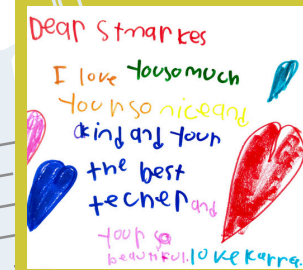 Dear Stmarkes
I love yousomuch
younso niceand
akind and your
the best
techer and
your so
beautiful. love Karra.